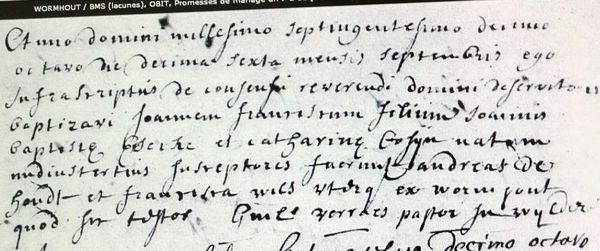 WORMHOUT / BMS (lacunes), OBIT, Promesses de mariage
Anno domini millesimo septingentesimo decimo
octavo die decima sexta mensis septembris ego
infrascriptus de consensu reverendi domini deservitoris
baptizavi Joannem franciscum filium Joannis
baptistę et catharinę natum
nudiustertius susceptores fuerunt andreas de
houdt et francisca wils uterq ex worm hout
quod sic testor verraes pastor in wylder
decimo octavo